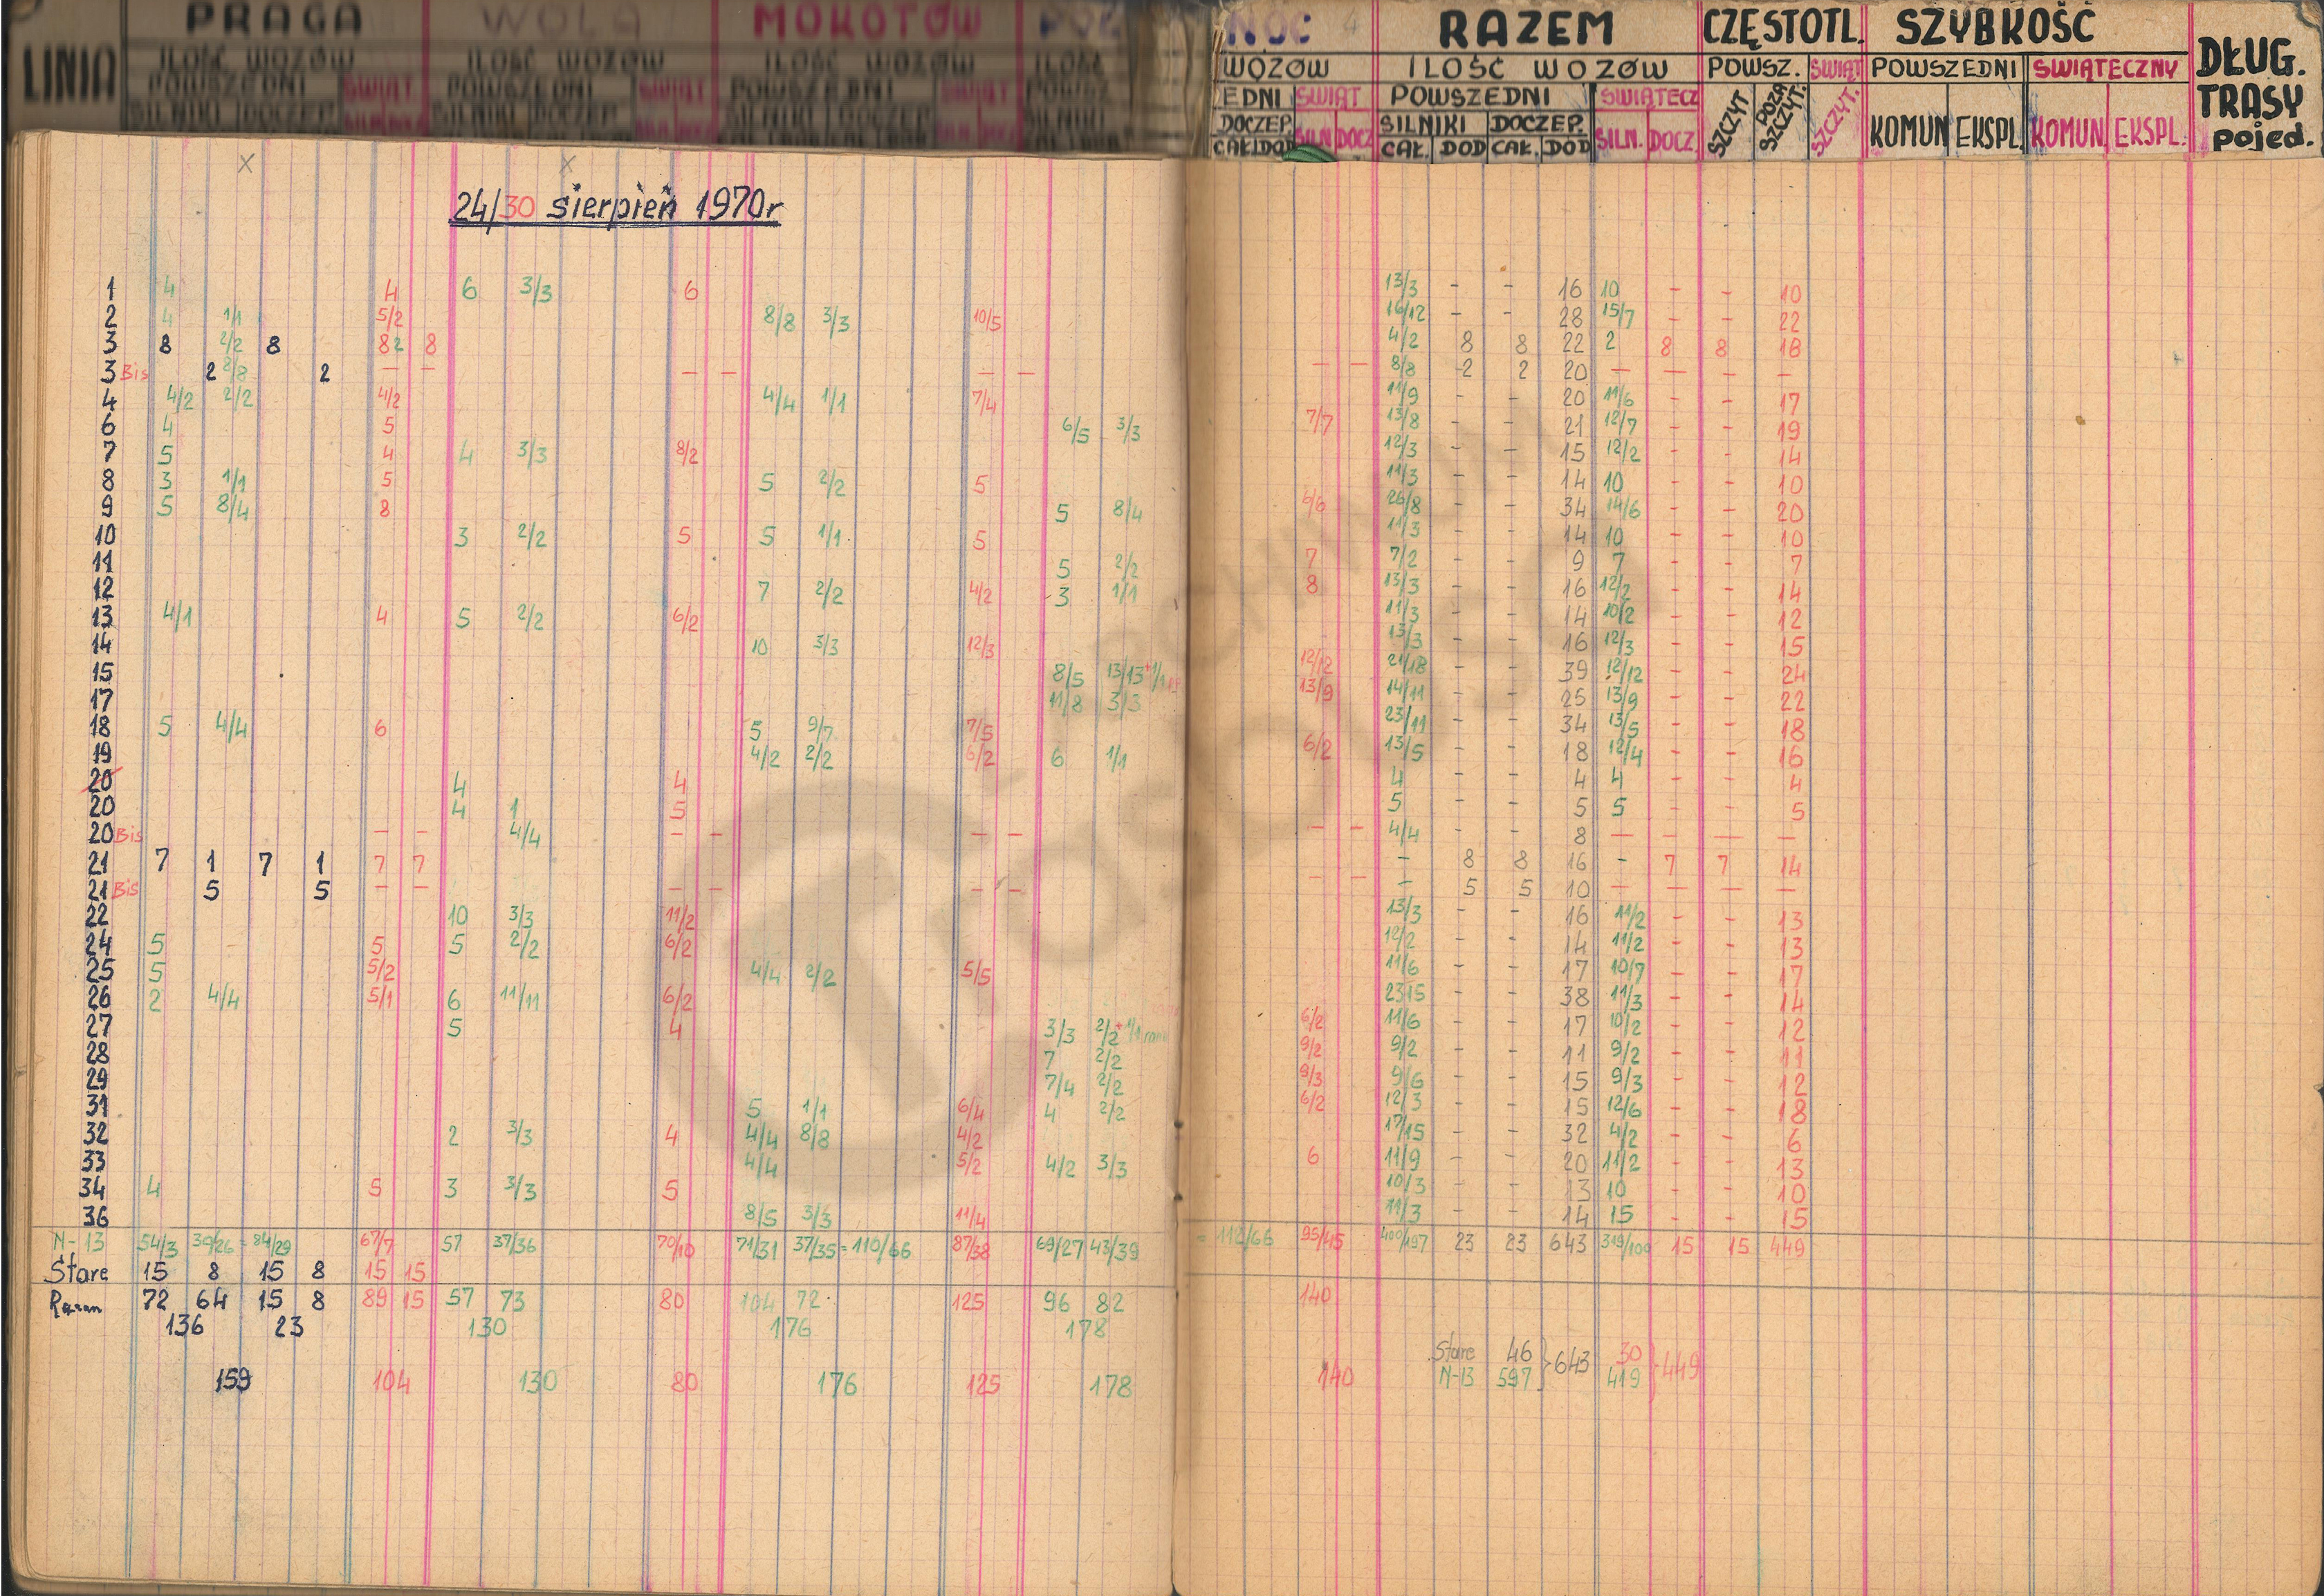 PRAGA WOLA MOKOTÓW PÓŁ NOC 4 RAZEM CZĘSTOTL. SZYBKOŚĆ
LINIA ILOŚĆ WOZÓW ILOŚĆ WOZÓW ILOŚĆ WOZÓW ILOŚĆ WOZÓW ILOŚĆ WOZÓW POWSZ. ŚWIĄT POWSZEDNI ŚWIĄTECZNY DŁUG. TRASY pojed.
POWSZEDNI ŚWIĄT. POWSZEDNI ŚWIĄT POWSZEDNI ŚWIĄT EDNI ŚWIĄT POWSZEDNI ŚWIĄTECZ SZCZYT POZA SZCZYT. SZCZYT.
SILNIKI DOCZEP. SILNIKI DOCZEP. SILNIKI DOCZEP. SILNIKI DOCZEP. SILN. DOCZ SILNIKI DOCZEP. SILN. DOCZ. KOMUN EKSPL. KOMUN. EKSPL.
CAŁ. DOD CAŁ. DOD CAŁ. DOD
x x
24/30 sierpień 1970r
1 4 4 6 3/3 6 13/3 - - 16 10 - - 10
2 4 1/1 5/2 8/8 3/3 10/5 16/12 - - 28 15/7 - - 22
3 8 2/2 8 82 8 4/2 8 8 22 2 8 8 18
3 Bis 2 8/8 2 - - - - - - - - 8/8 2 2 20 - - - -
4 4/2 2/2 4/2 4/4 1/1 7/4 11/9 - - 20 11/6 - - 17
6 4 5 6/5 3/3 7/7 13/8 - - 21 12/7 - - 19
7 5 4 4 3/3 8/2 12/3 - - 15 12/2 - - 14
8 3 1/1 5 5 2/2 5 11/3 - - 14 10 - - 10
9 5 8/4 8 5 8/4 6/6 26/8 - - 34 14/6 - - 20
10 3 2/2 5 5 1/1 5 11/3 - - 14 10 - - 10
11 5 2/2 7 7/2 - - 9 7 - - 7
12 7 2/2 4/2 3 1/1 8 13/3 - - 16 12/2 - - 14
13 4/1 4 5 2/2 6/2 11/3 - - 14 10/2 - - 12
14 10 3/3 12/3 13/3 - - 16 12/3 - - 15
15 8/5 13/13+1/1 12/12 21/18 - - 39 12/12 - - 24
17 11/8 3/3 13/9 14/11 - - 25 13/9 - - 22
18 5 4/4 6 5 9/7 7/5 23/11 - - 34 13/5 - - 18
19 4/2 2/2 6/2 6 1/1 6/2 13/5 - - 18 12/4 - - 16
20 4 4 4 - - 4 4 - - 4
20 4 1 5 5 - - 5 5 - - 5
20 Bis - - 4/4 - - - - - - 4/4 - - 8 - - - -
21 7 1 7 1 7 7 - 8 8 16 - 7 7 14
21 Bis 5 5 - - - - - - - - - 5 5 10 - - - -
22 10 3/3 11/2 13/3 - - 16 11/2 - - 13
24 5 5 5 2/2 6/2 12/2 - - 14 11/2 - - 13
25 5 5/2 4/4 2/2 5/5 11/6 - - 17 10/7 - - 17
26 2 4/4 5/1 6 11/11 6/2 23 15 - - 38 11/3 - - 14
27 5 4 3/3 2/2+1/1 6/2 11/6 - - 17 10/2 - - 12
28 7 2/2 9/2 9/2 - - 11 9/2 - - 11
29 7/4 2/2 9/3 9/6 - - 15 9/3 - - 12
31 5 1/1 6/4 4 2/2 6/2 12/3 - - 15 12/6 - - 18
32 2 3/3 4 4/4 8/8 4/2 17/15 - - 32 4/2 - - 6
33 4/4 5/2 4/2 3/3 6 11/9 - - 20 11/2 - - 13
34 4 5 3 3/3 5 10/3 - - 13 10 - - 10
36 8/5 3/3 11/4 11/3 - - 14 15 - - 15
N-13 54/3 30/26 = 84/29 67/7 57 37/36 70/10 71/31 37/35 = 110/66 87/38 69/27 43/39 = 112/66 95/45 400/197 23 23 643 319/100 15 15 449
Stare 15 8 15 8 15 15
Razem 72 64 15 8 89 15 57 73 80 104 72 125 96 82 140
136 23 130 176 178
Stare 46 } 643 30 } 449
N-13 597 419
159 104 130 80 176 125 178 140